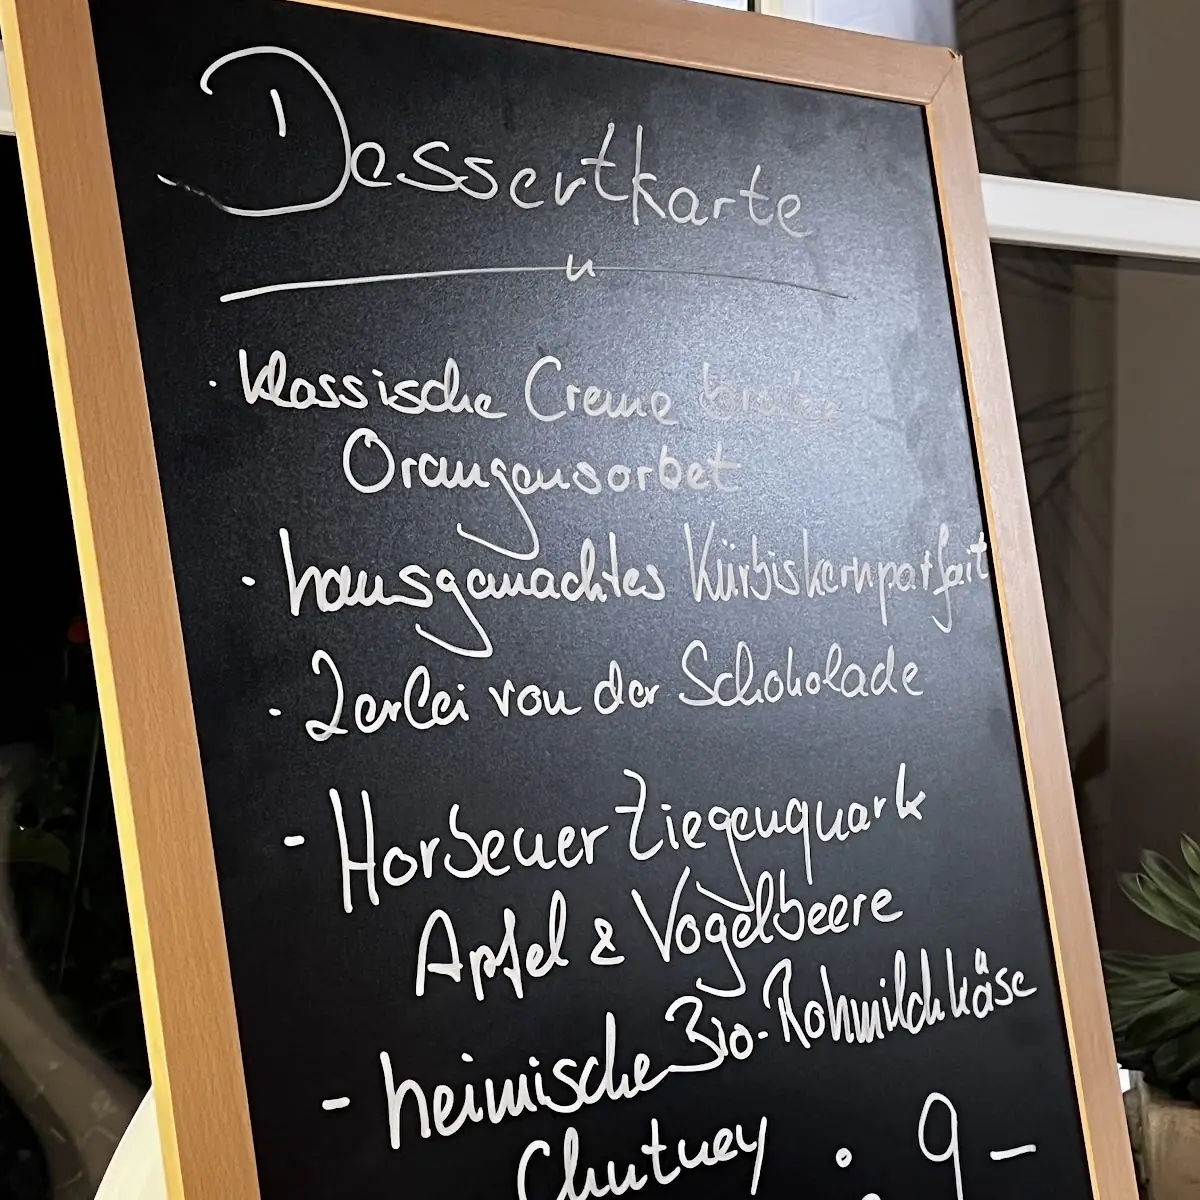 Dessertkarte
· klassische Creme brulee
Orangensorbet
· hausgemachtes Kürbiskernparfait
· 2erlei von der Schokolade
- Horbener Ziegenquark
Apfel & Vogelbeere
- heimische Bio-Rohmilchkäse
Chutney : 9-